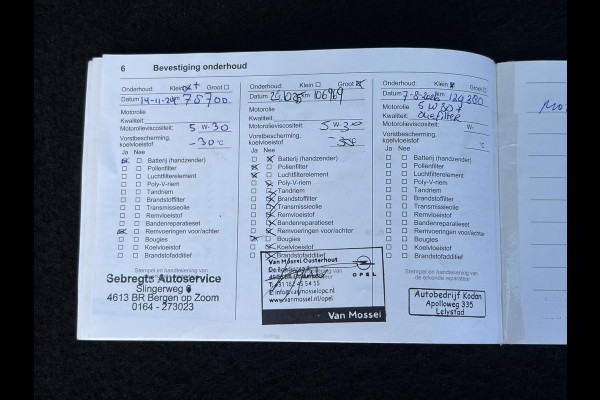 6 Bevestiging onderhoud
Onderhoud: Klein Groot
Datum 14-11-24 km 78700
Motorolie
Kwaliteit:
Motorolieviscositeit: 5 W-30
Vorstbescherming.
koelvloeistof -30°C
Ja Nee
Batterij (handzender)
Pollenfilter
Luchtfilterelement
Poly-V-riem
Tandriem
Brandstoffilter
Transmissieolie
Remvloeistof
Bandenreparatieset
Remvoeringen voor/achter
Bougies
Koelvloeistof
Brandstofadditief
Stempel en handtekening van
Sebregts Autoservice
Slingerweg 6
4613 BR Bergen op Zoom
0164 - 273023
Onderhoud: Klein Groot
Datum km 106969
Motorolie
Kwaliteit:
Motorolieviscositeit: 5 W-30
Vorstbescherming.
koelvloeistof
Ja Nee
Batterij (handzender)
Pollenfilter
Luchtfilterelement
Poly-V-riem
Tandriem
Brandstoffilter
Transmissieolie
Remvloeistof
Bandenreparatieset
Remvoeringen voor/achter
Bougies
Koelvloeistof
Brandstofadditief
Van Mossel Oosterhout
OPEL
www.vanmossel.nl/opel
Van Mossel
Onderhoud: Klein Groot
Datum km 129380
Motorolie 5 W30 +
Kwaliteit: oliefilter
Motorolieviscositeit: W-
Vorstbescherming.
koelvloeistof °C
Ja Nee
Batterij (handzender)
Pollenfilter
Luchtfilterelement
Poly-V-riem
Tandriem
Brandstoffilter
Transmissieolie
Remvloeistof
Bandenreparatieset
Remvoeringen voor/achter
Bougies
Koelvloeistof
Brandstofadditief
Stempel en handtekening van
de erkende reparateur
Autobedrijf Kodan
Apolloweg 335
Lelystad